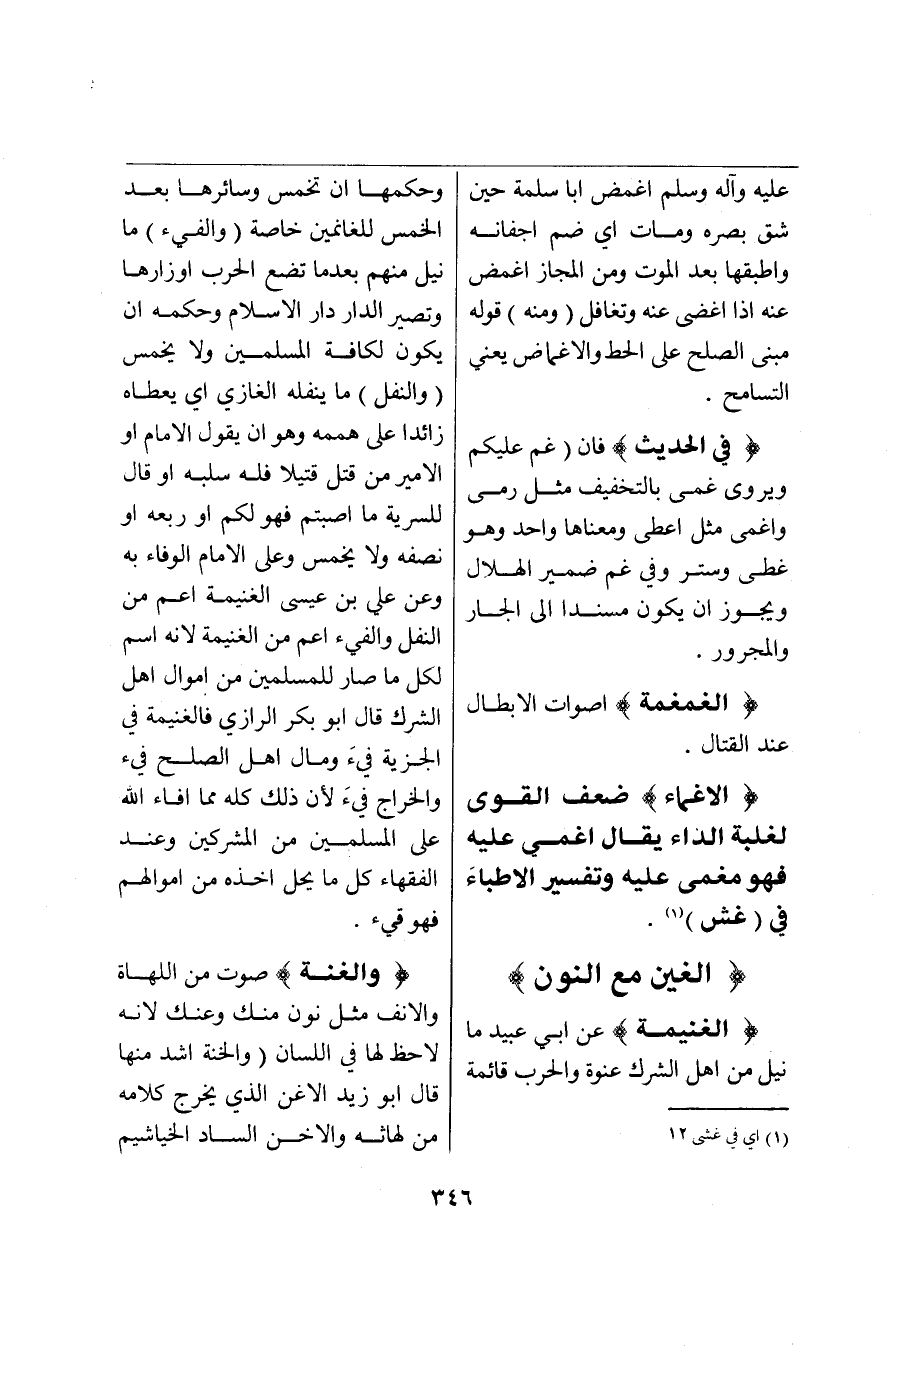 عليه وآله وسلم اغمض ابا سلمة حين
شق بصره ومات اي ضم اجفانه
واطبقها بعد الموت ومن المجاز اغمض
عنه اذا اغضى عنه وتغافل ( ومنه ) قوله
مبنى الصلح على الحط والاغماض يعني
التسامح .
﴿ في الحديث ﴾ فان ( غم عليكم
ويروى غمى بالتخفيف مثل رمى
واغمى مثل اعطى ومعناها واحد وهو
غطى وستر وفي غم ضمير الهلال
ويجوز ان يكون مسندا الى الجار
والمجرور .
﴿ الغمغمة ﴾ اصوات الابطال
عند القتال .
﴿ الاغماء ﴾ ضعف القوى
لغلبة الداء يقال اغمى عليه
فهو مغمى عليه وتفسير الاطباءَ
في ( غش )(١) .
﴿ الغين مع النون ﴾
﴿ الغنيمة ﴾ عن ابي عبيد ما
نيل من اهل الشرك عنوة والحرب قائمة
(١) اي في غشى ١٢
وحكمها ان تخمس وسائرها بعد
الخمس للغانمين خاصة ( والفيء ) ما
نيل منهم بعدما تضع الحرب اوزارها
وتصير الدار دار الاسلام وحكمه ان
يكون لكافة المسلمين ولا يخمس
( والنفل ) ما ينفله الغازي اي يعطاه
زائدا على هممه وهو ان يقول الامام او
الامير من قتل قتيلا فله سلبه او قال
للسرية ما اصبتم فهو لكم او ربعه او
نصفه ولا يخمس وعلى الامام الوفاء به
وعن علي بن عيسى الغنيمة اعم من
النفل والفيء اعم من الغنيمة لانه اسم
لكل ما صار للمسلمين من اموال اهل
الشرك قال ابو بكر الرازي فالغنيمة في
الجزية فيءَ ومال اهل الصلح فيء
والخراج فيءَ لأن ذلك كله مما افاء الله
على المسلمين من المشركين وعند
الفقهاء كل ما يحل اخذه من اموالهم
فهو قيء .
﴿ والغنة ﴾ صوت من اللهاة
والانف مثل نون منك وعنك لانه
لاحظ لها في اللسان ( والخنة اشد منها
قال ابو زيد الاغن الذي يخرج كلامه
من لهاته والاخن الساد الخياشيم
٣٤٦